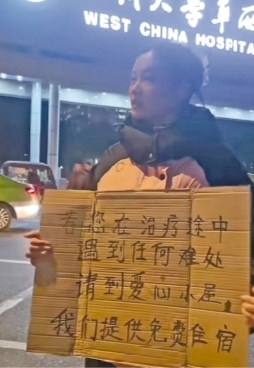 大学华西
WEST CHINA HOSPITA
若您在治疗途中
遇到任何难处
请到爱心小屋
我们提供免费住宿